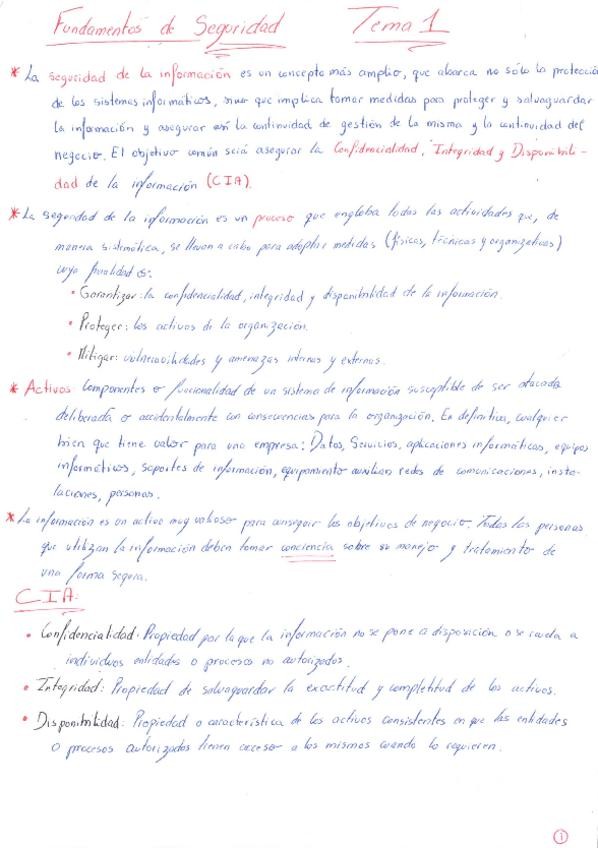 Fundamentos de Seguridad Tema 1
* La seguridad de la información es un concepto más amplio, que abarca no sólo la protección
de los sistemas informáticos, sino que implica tomar medidas para proteger y salvaguardar
la información y asegurar así la continuidad de gestión de la misma y la continuidad del
negocio. El objetivo común será asegurar la Confidencialidad, Integridad y Disponibili-
dad de la información (CIA).
* La seguridad de la información es un proceso que engloba todas las actividades que, de
manera sistemática, se llevan a cabo para adoptar medidas (físicas, técnicas y organizativas)
cuya finalidad es:
• Garantizar: la confidencialidad, integridad y disponibilidad de la información.
• Proteger: los activos de la organización.
• Mitigar: vulnerabilidades y amenazas internas y externas.
* Activos: Componentes o funcionalidad de un sistema de información susceptible de ser atacada
deliberada o accidentalmente con consecuencias para la organización. En definitiva, cualquier
bien que tiene valor para una empresa: Datos, Servicios, aplicaciones informáticas, equipos
informáticos, soportes de información, equipamiento auxiliar, redes de comunicaciones, insta-
laciones, personas.
* La información es un activo muy valioso para conseguir los objetivos de negocio. Todas las personas
que utilizan la información deben tomar conciencia sobre su manejo y tratamiento de
una forma segura.
CIA:
• Confidencialidad: Propiedad por la que la información no se pone a disposición o se revela a
individuos entidades o procesos no autorizados.
• Integridad: Propiedad de salvaguardar la exactitud y completitud de los activos.
• Disponibilidad: Propiedad o característica de los activos consistentes en que las entidades
o procesos autorizados tienen acceso a los mismos cuando lo requieren.
1